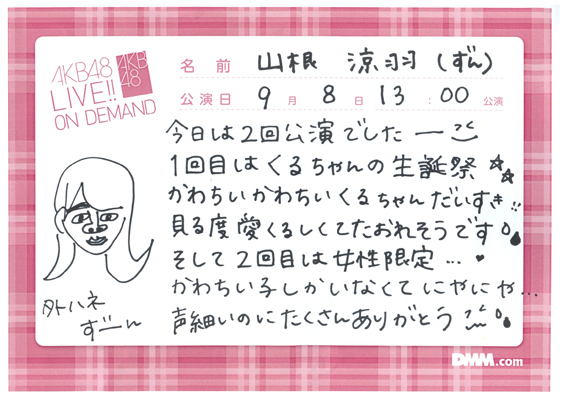 AKB48
LIVE!!
ON DEMAND
AKB
48
名前 山根 涼羽 (ずん)
公演日 9月 8日 13:00 公演
今日は2回公演でした
1回目はくるちゃんの生誕祭☆☆
かわちいかわちいくるちゃんだいすき!!
見る度愛くるしくてたおれそうです
そして2回目は女性限定…♥
かわちい子しかいなくてにやにや…
声細いのにたくさんありがとう
外ハネ
ずーん
DMM.com